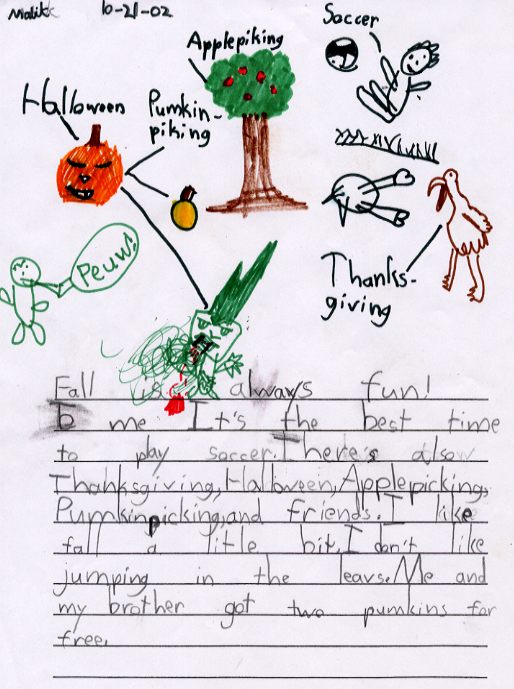 Malik 10-21-02
Soccer
Applepiking
Halloween
Pumkin-
piking
Peuw!
Thanks-
giving
Fall is always fun!
To me It's the best time
to play soccer. There's also
Thanksgiving, Halloween, Applepicking,
Pumkinpicking, and friends. I like
fall a litle bit, I don't like
jumping in the leavs. Me and
my brother got two pumkins for
free.